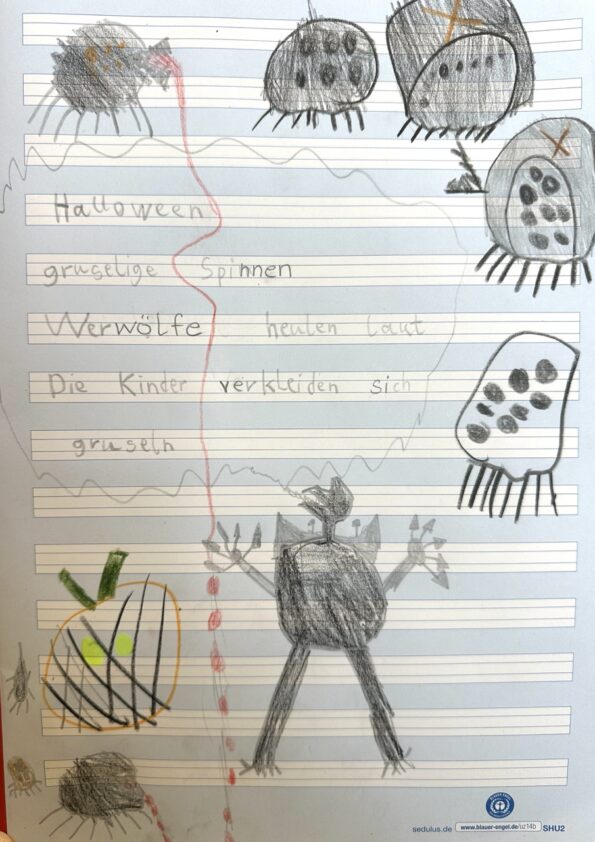 Halloween
gruselige Spinnen
Werwölfe heulen laut
Die Kinder verkleiden sich
gruseln
sedulus.de www.blauer-engel.de/uz14b SHU2